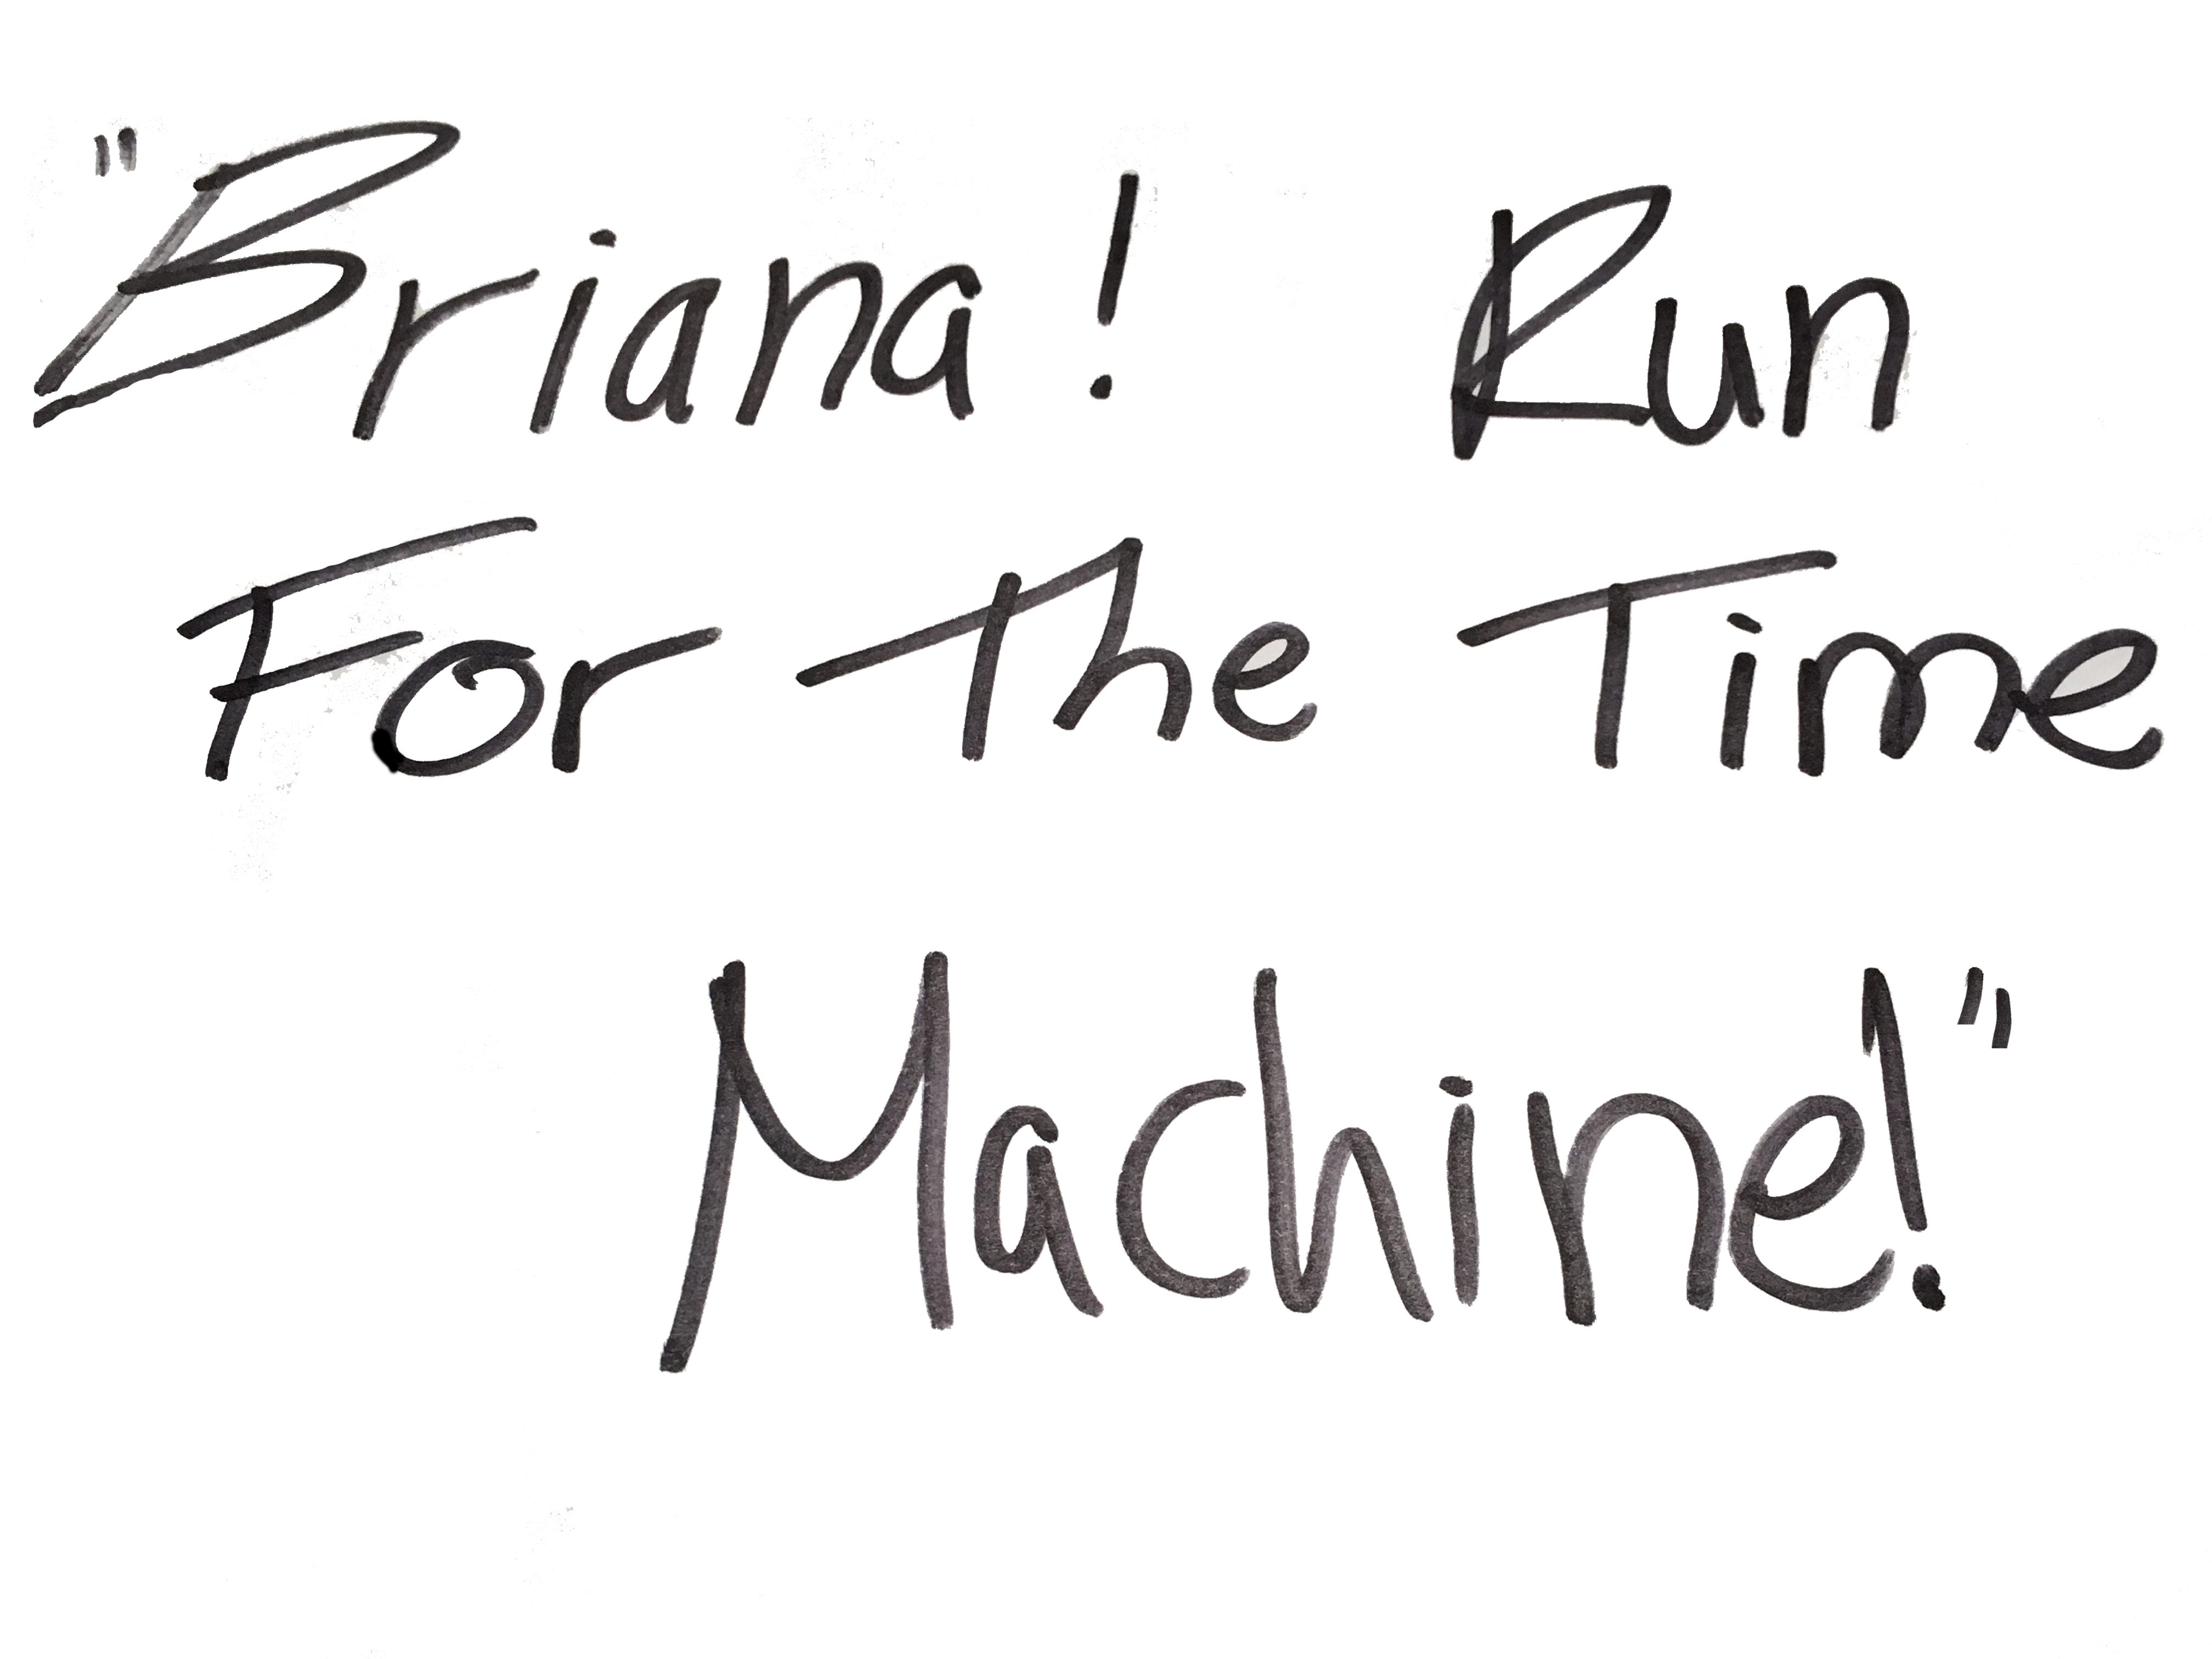 "Briana! Run
For The Time
Machine!"